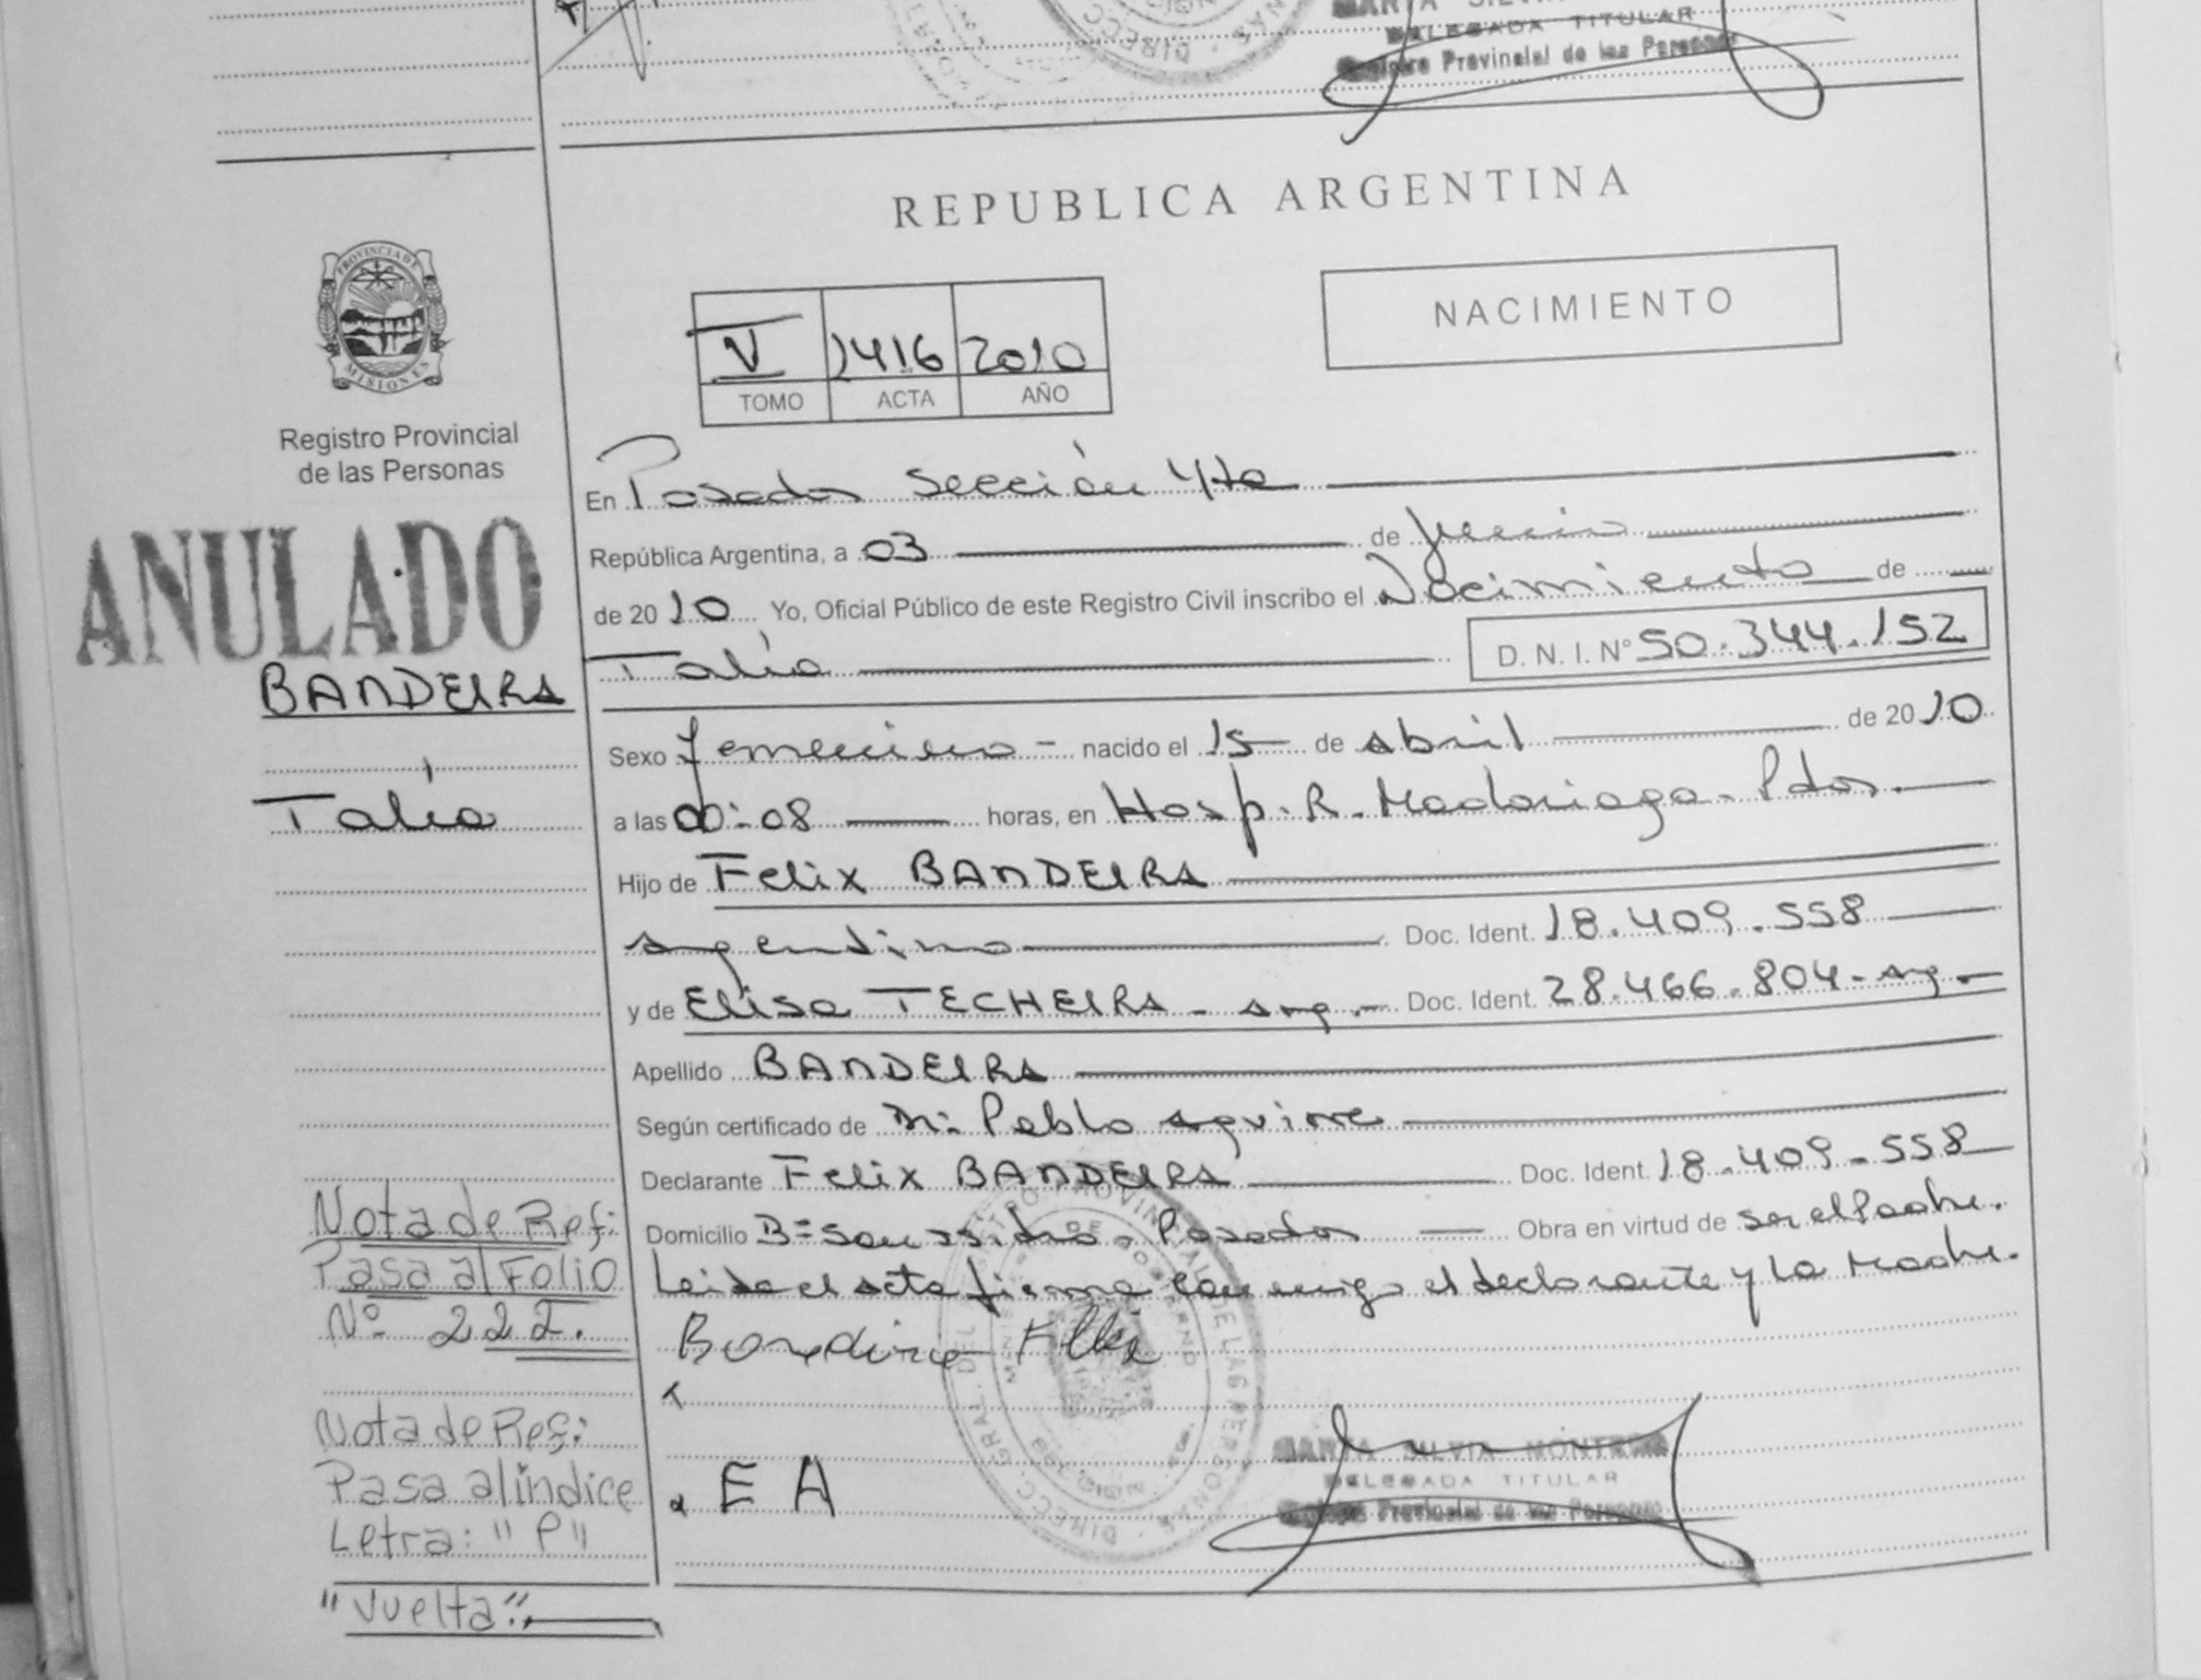 DELEGADA TITULAR
Registro Provincial de las Personas
REPUBLICA ARGENTINA
NACIMIENTO
V 1416 2010
TOMO ACTA AÑO
PROVINCIA DE MISIONES
Registro Provincial
de las Personas
ANULADO
BANDEIRA
Talía
Nota de Ref:
Pasa al Folio
Nº 222.
Nota de Ref:
Pasa al índice
Letra: "P"
"Vuelta".
En Posadas Sección 4ta
República Argentina, a 03 de Junio
de 2010 Yo, Oficial Público de este Registro Civil inscribo el Nacimiento de
Talía D.N.I. Nº 50.344.152
Sexo femenino - nacido el 15 de Abril de 2010
a las 00:08 horas, en Hosp. R. Madariaga - Pdas.
Hijo de Felix BANDEIRA
argentino Doc. Ident. 18.409.558
y de Elisa TECHEIRA - arg.- Doc. Ident. 28.466.804 - arg.-
Apellido BANDEIRA
Según certificado de Dr: Pablo Aguirre
Declarante Felix BANDEIRA Doc. Ident. 18.409.558
Domicilio Bº San Isidro - Posadas Obra en virtud de ser el Padre.
Leida el acta firma conmigo el declarante y la Madre.
E A
MARTA SILVIA
DELEGADA TITULAR
Registro Provincial de las Personas